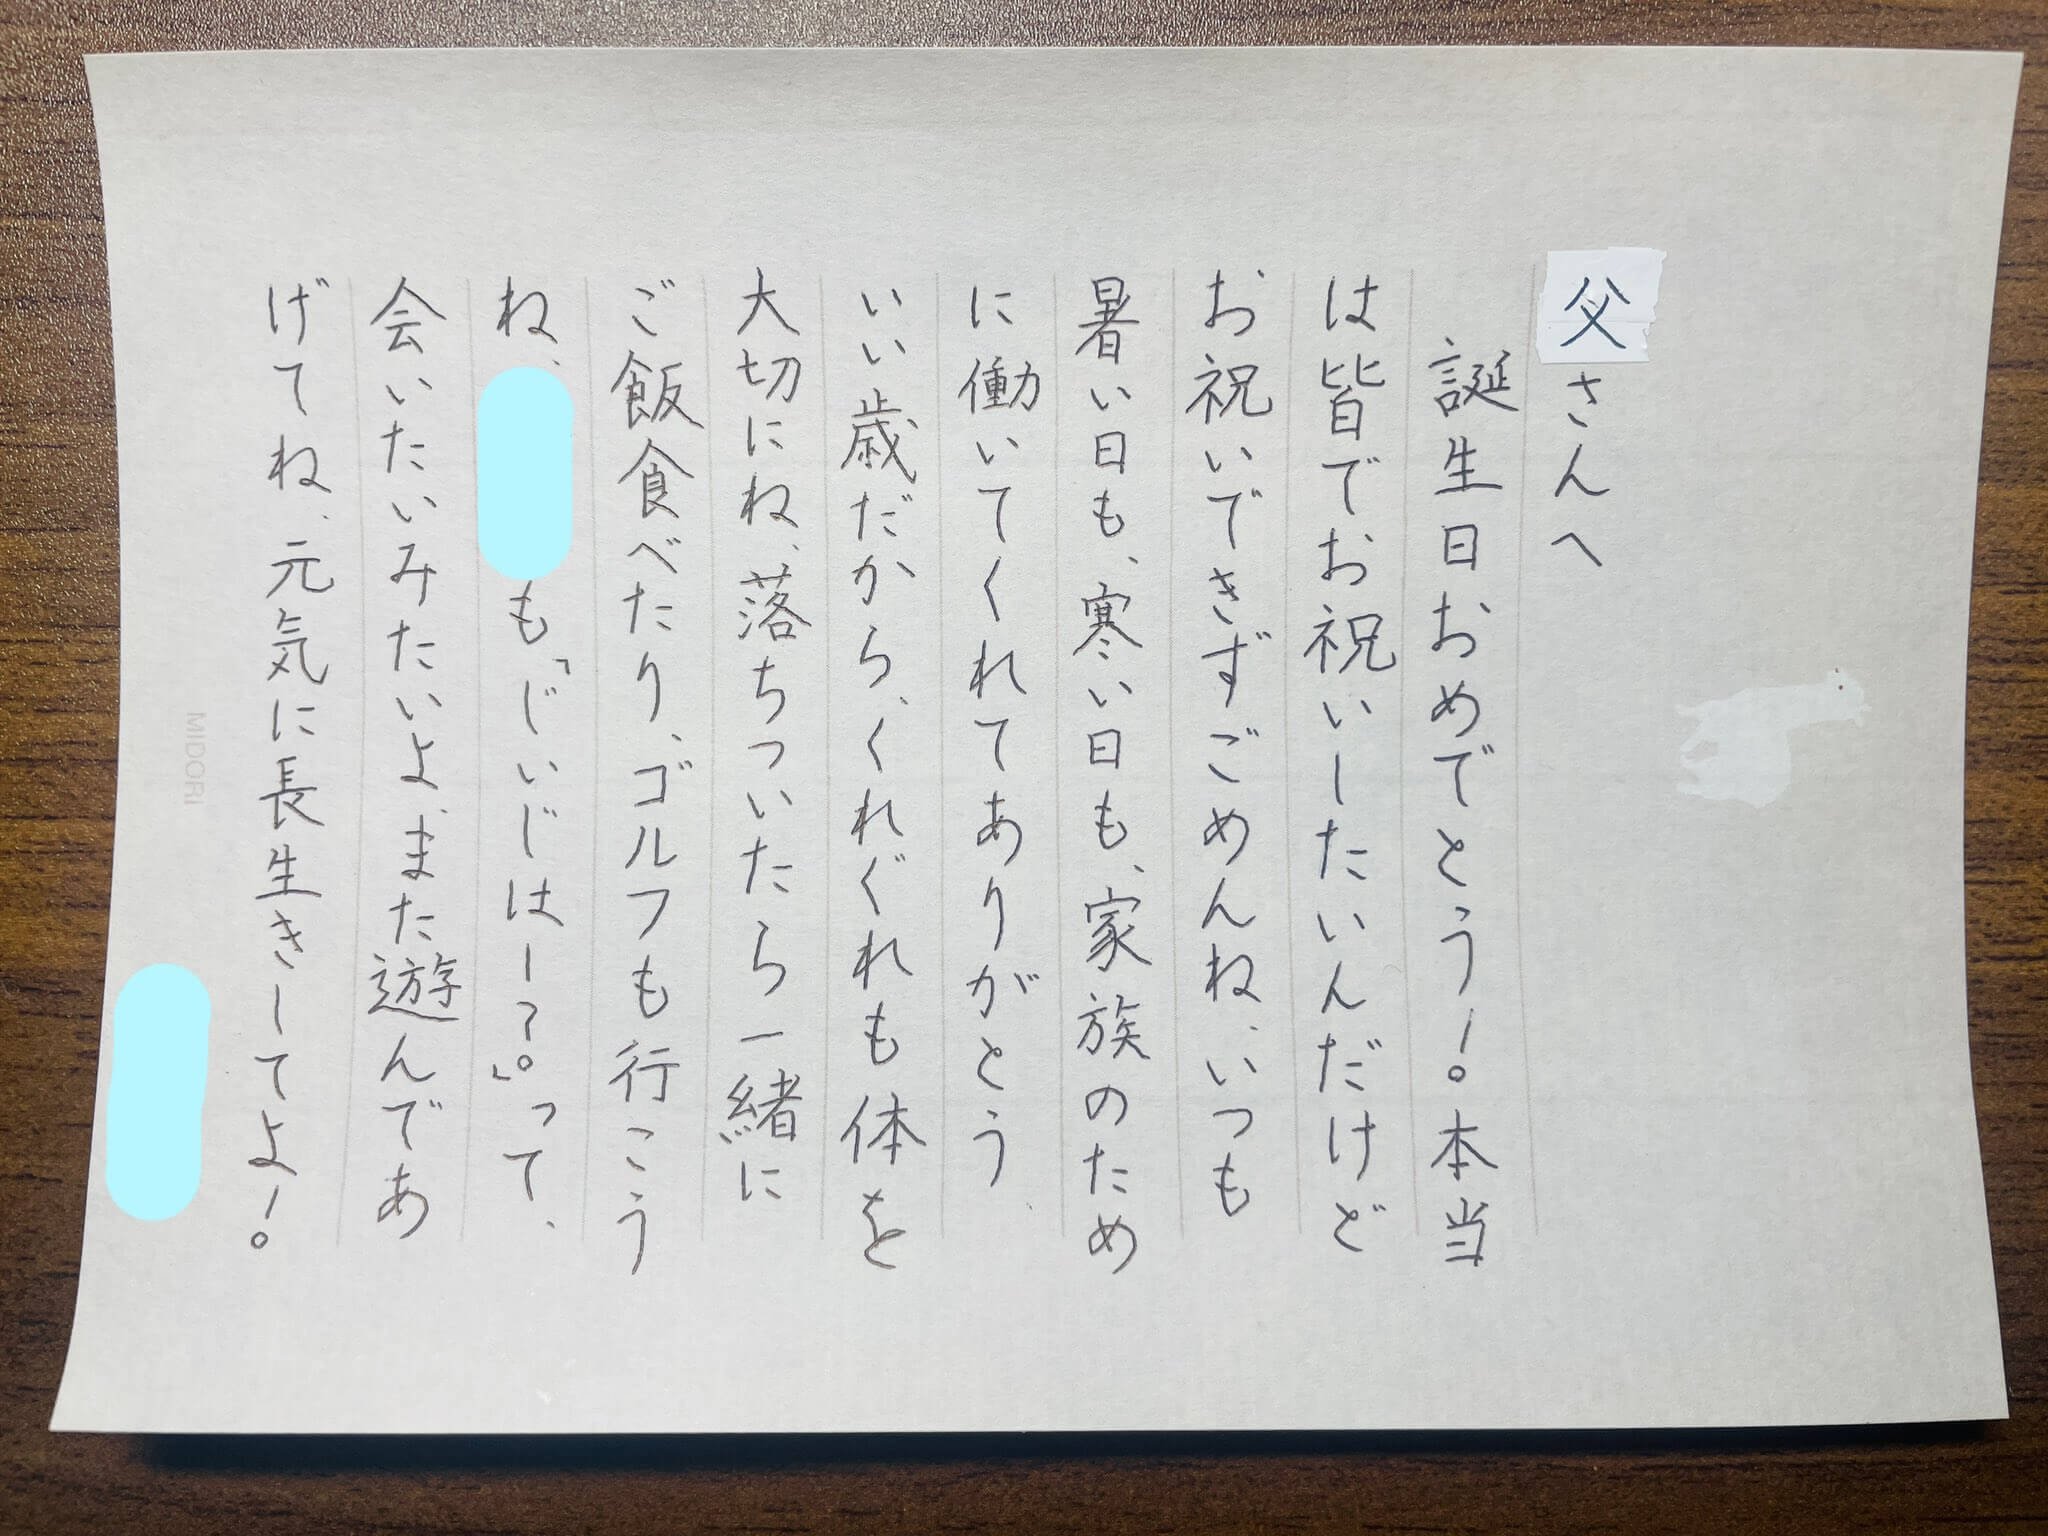 父さんへ
誕生日おめでとう！。本当
は皆でお祝いしたいんだけど
お祝いできずごめんね、いつも
暑い日も、寒い日も、家族のため
に働いてくれてありがとう、
いい歳だから、くれぐれも体を
大切にね、落ちついたら一緒に
ご飯食べたり、ゴルフも行こう
ね、
も「じいじはー？。」って、
会いたいみたいよ、また遊んであ
げてね、元気に長生きしてよ！。
MIDORI